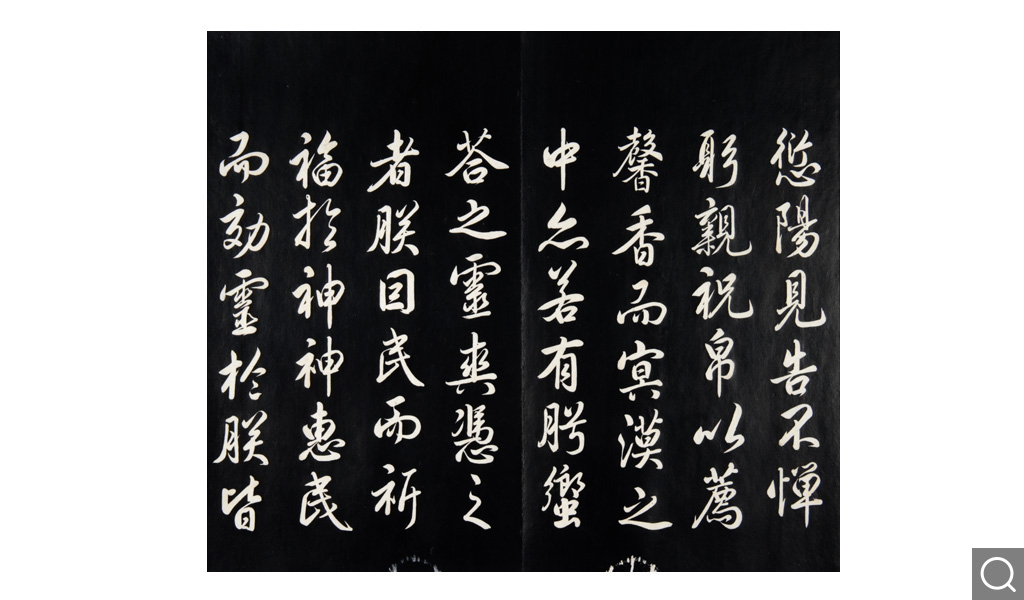 愆陽見告不憚
躬親祝帛以薦
馨香而冥漠之
中亦若有肹蠁
荅之靈爽憑之
者朕因民而祈
福於神神惠民
而効靈於朕皆